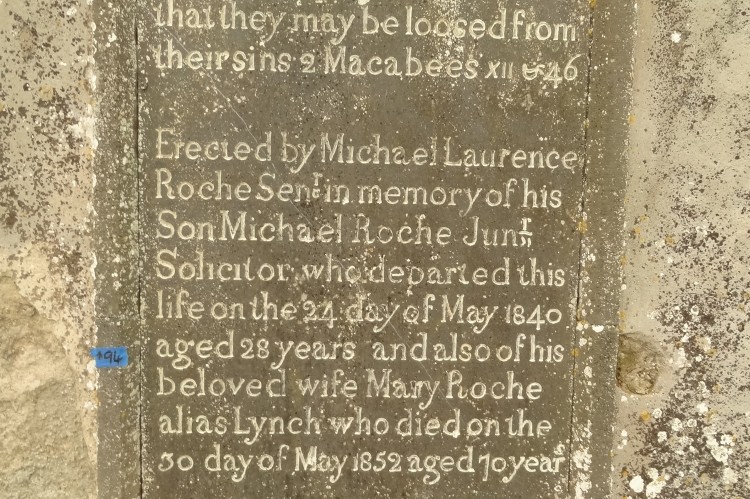 that they may be loosed from
their sins 2 Macabees XII & 46
Erected by Michael Laurence
Roche Senr in memory of his
Son Michael Roche Junr
Solicitor who departed this
life on the 24 day of May 1840
aged 28 years and also of his
beloved wife Mary Roche
alias Lynch who died on the
30 day of May 1852 aged 70 year
94